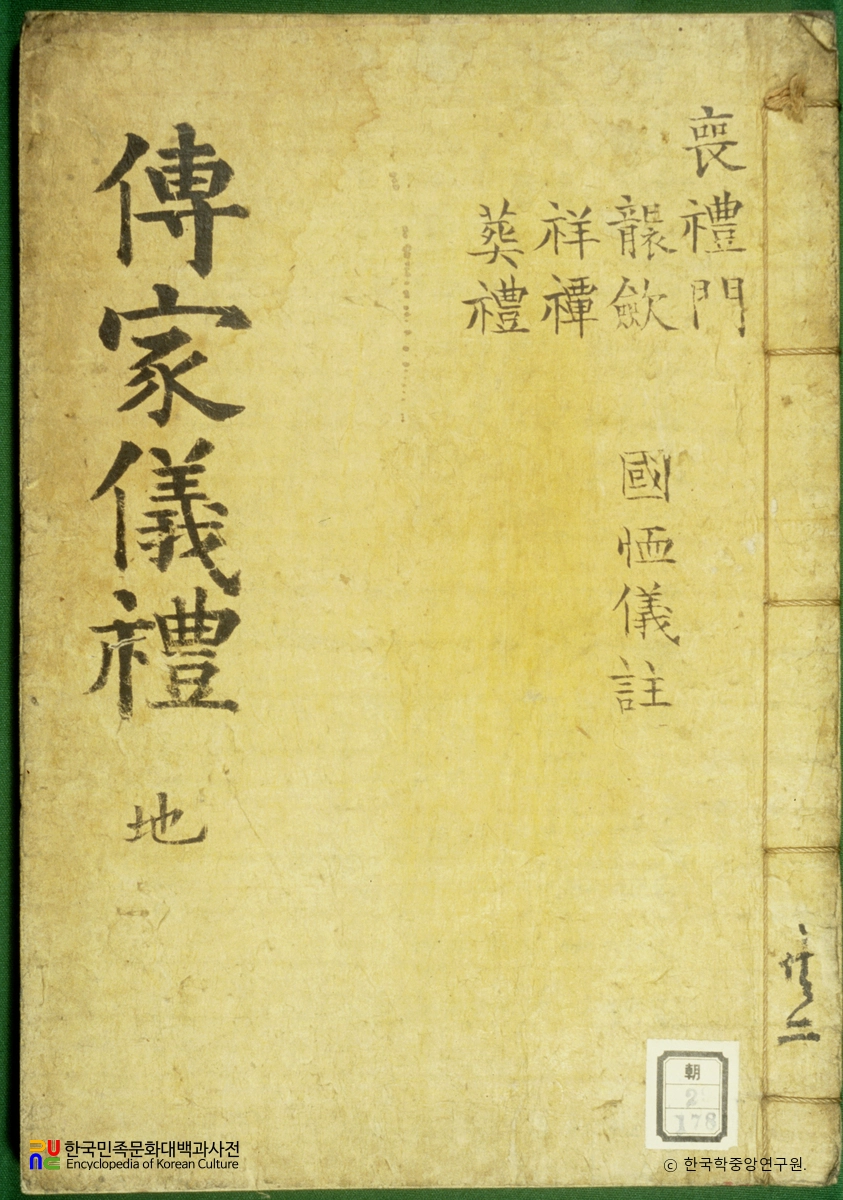 喪禮門
襲斂
祥禫
葬禮
國恤儀註
傳家儀禮 地
二
朝
2
178
한국민족문화대백과사전
Encyclopedia of Korean Culture
© 한국학중앙연구원.